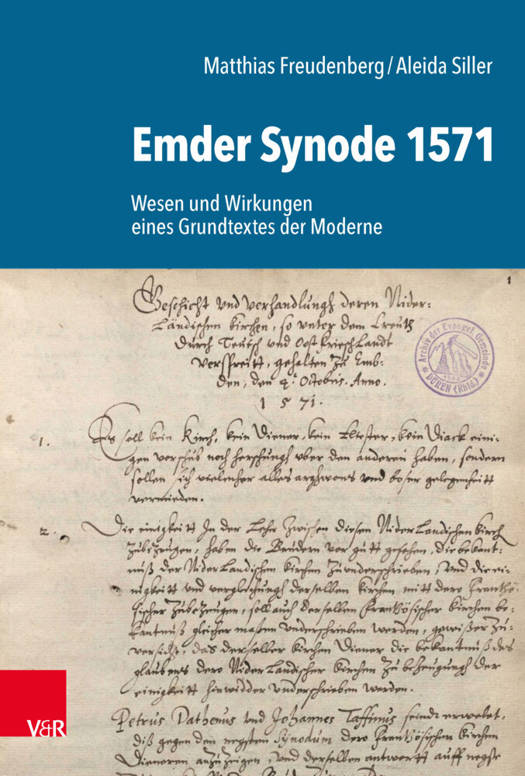 Matthias Freudenberg/Aleida Siller
Emder Synode 1571
Wesen und Wirkungen
eines Grundtextes der Moderne
1
Geschicht und verhandlungh deren Nider-
Ländischen kirchen, so unter dem Creutz
durch Teutsch und Oost frießlandt
verspreitt, gehalten zu Emb-
den, den 4. Octobris. Anno.
1571.
Archiv der Evangel. Gemeinde
DÜREN (Rhld)
1. Es soll kein Kirch, kein Diener, kein Eltester, kein Diack eini-
gen vorzüs noch herschungh uber den anderen haben, sondern
sollen sich vielmher alles arghwons und böser gelegenheitt
vermeiden.
2. Die einigkeitt In der Lehr zwischen diesen Niderlandischen kirch
zubezeugen, haben die Brüdern vor gutt gesehen, die bekant-
nuß der Niderlandischen kirchen zu underschrieben, und die ei-
nigkeitt und vergleichungh derselben kirchen mitt dero Frantzö-
sischer zubezeugen, soll auch derselben Frantzösischer kirchen be-
kantnuß gleicher maßen underschrieben werden, gewißer zu-
versicht, das derselber kirchen Diener die bekantnuß des
glaubens dero Niderlandischer kirchen zu bezeigungh der
einigkeitt hinwidder underschrieben werden.
Petrus Dathenus und Johannes Taffinus seindt erwelet,
diß gegen den negsten Synodum dero Frantzösischen kirchen
Dieneren anzuzeigen, und derselben antwortt auff negste
V&R